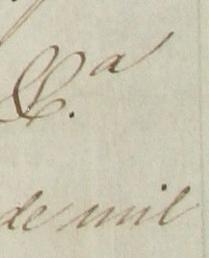 &.ª
de mil